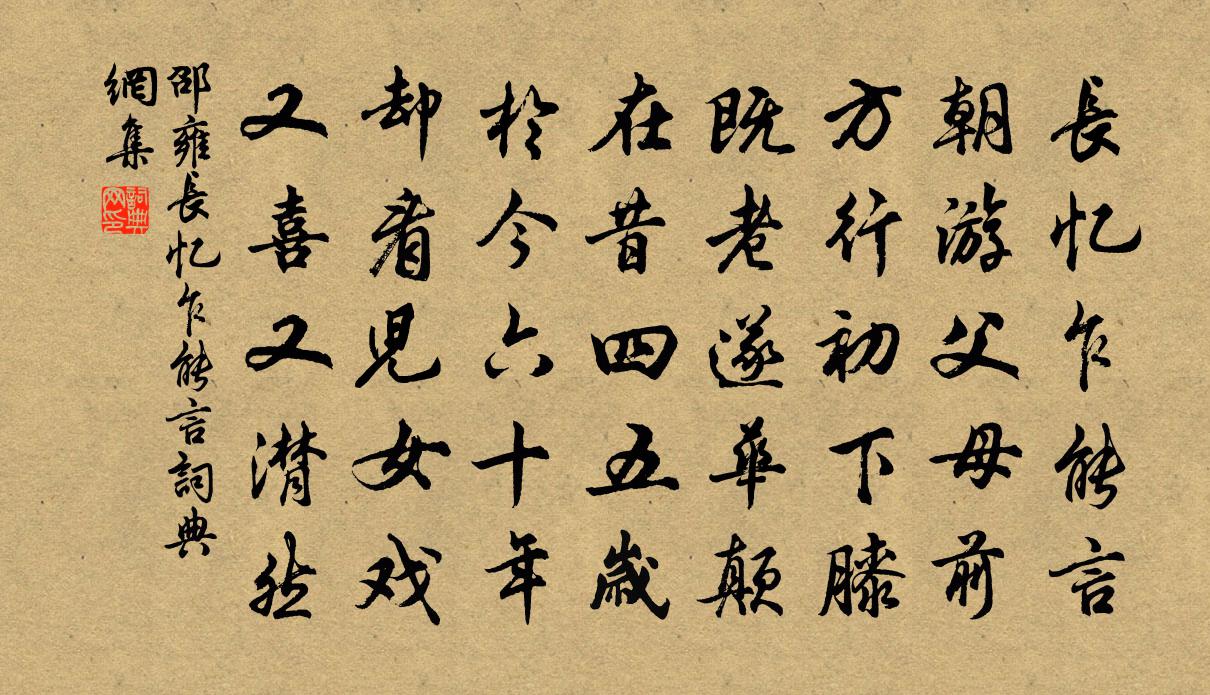 長忆乍能言
朝游父母前
方行初下膝
既老遂華顛
在昔四五歳
於今六十年
却看児女戏
又喜又潸然
邵雍長忆乍能言詞典
網集
詞典网印